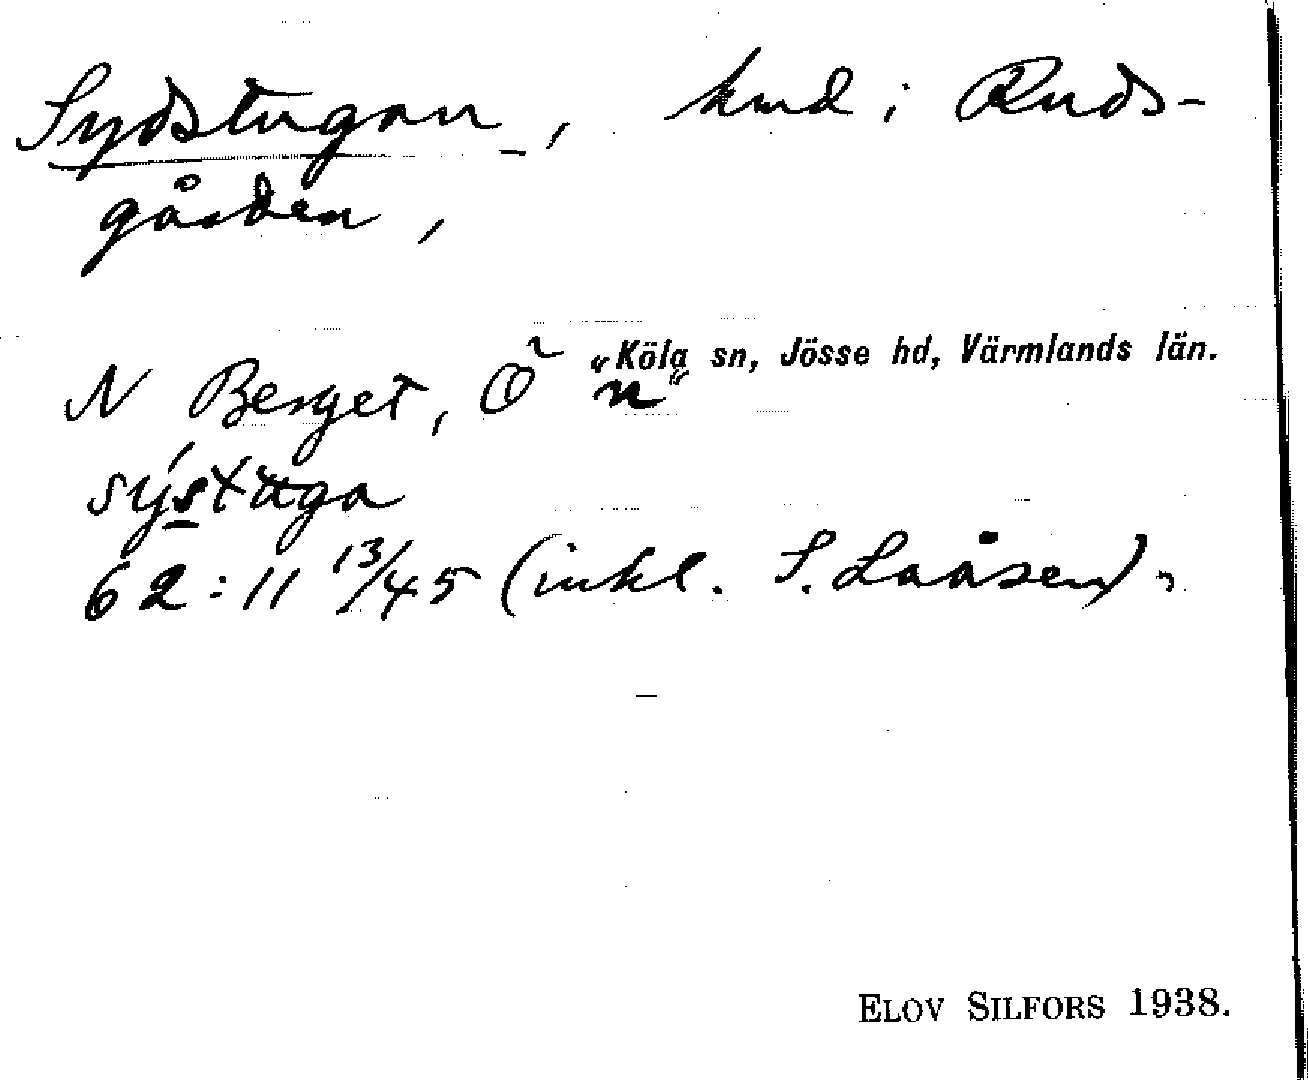 Sydstugan, hmd i Ruds-
gården,
N Berget, Ö² „Köla„ sn, Jösse hd, Värmlands län.
n
sýstäga
62:11 13/45 (inkl. S. Laåsen).
ELOV SILFORS 1938.